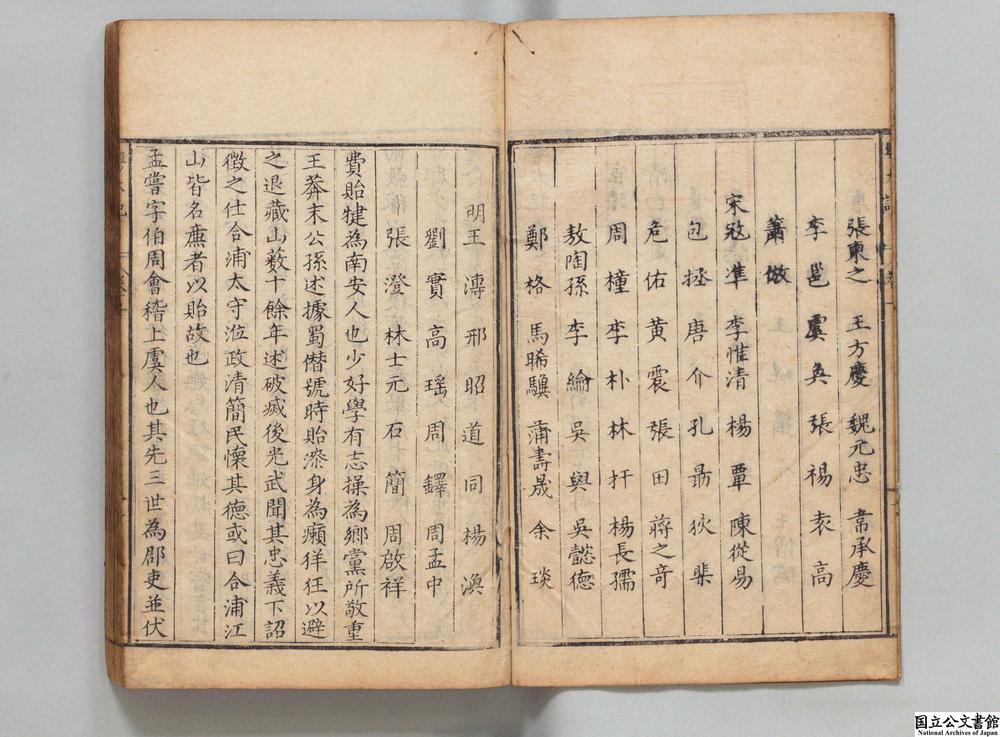 張柬之 王方慶 魏元忠 韋承慶
李邕 盧奐 張禓 袁高
蕭倣
宋冦準 李惟清 楊覃 陳從易
包拯 唐介 孔勗 狄棐
危佑 黄震 張田 蔣之奇
周橦 李朴 林扞 楊長孺
敖陶孫 李綸 吳與 吳懿德
鄭格 馬晞驥 蒲壽晟 余琰
明王漙 邢昭 道同 楊渙
劉實 高瑶 周鐸 周孟中
張澄 林士元 石簡 周啟祥
費貽犍為南安人也少好學有志操為鄉黨所敬重
王莽末公孫述據蜀僣號時貽漆身為癩佯狂以避
之退藏山薮十餘年述破威後光武聞其忠義下詔
徵之仕合浦太守涖政清簡民懷其德或曰合浦江
山皆名㢘者以貽故也
孟嘗字伯周會稽上虞人也其先三世為郡吏並伏
国立公文書館
National Archives of Japan